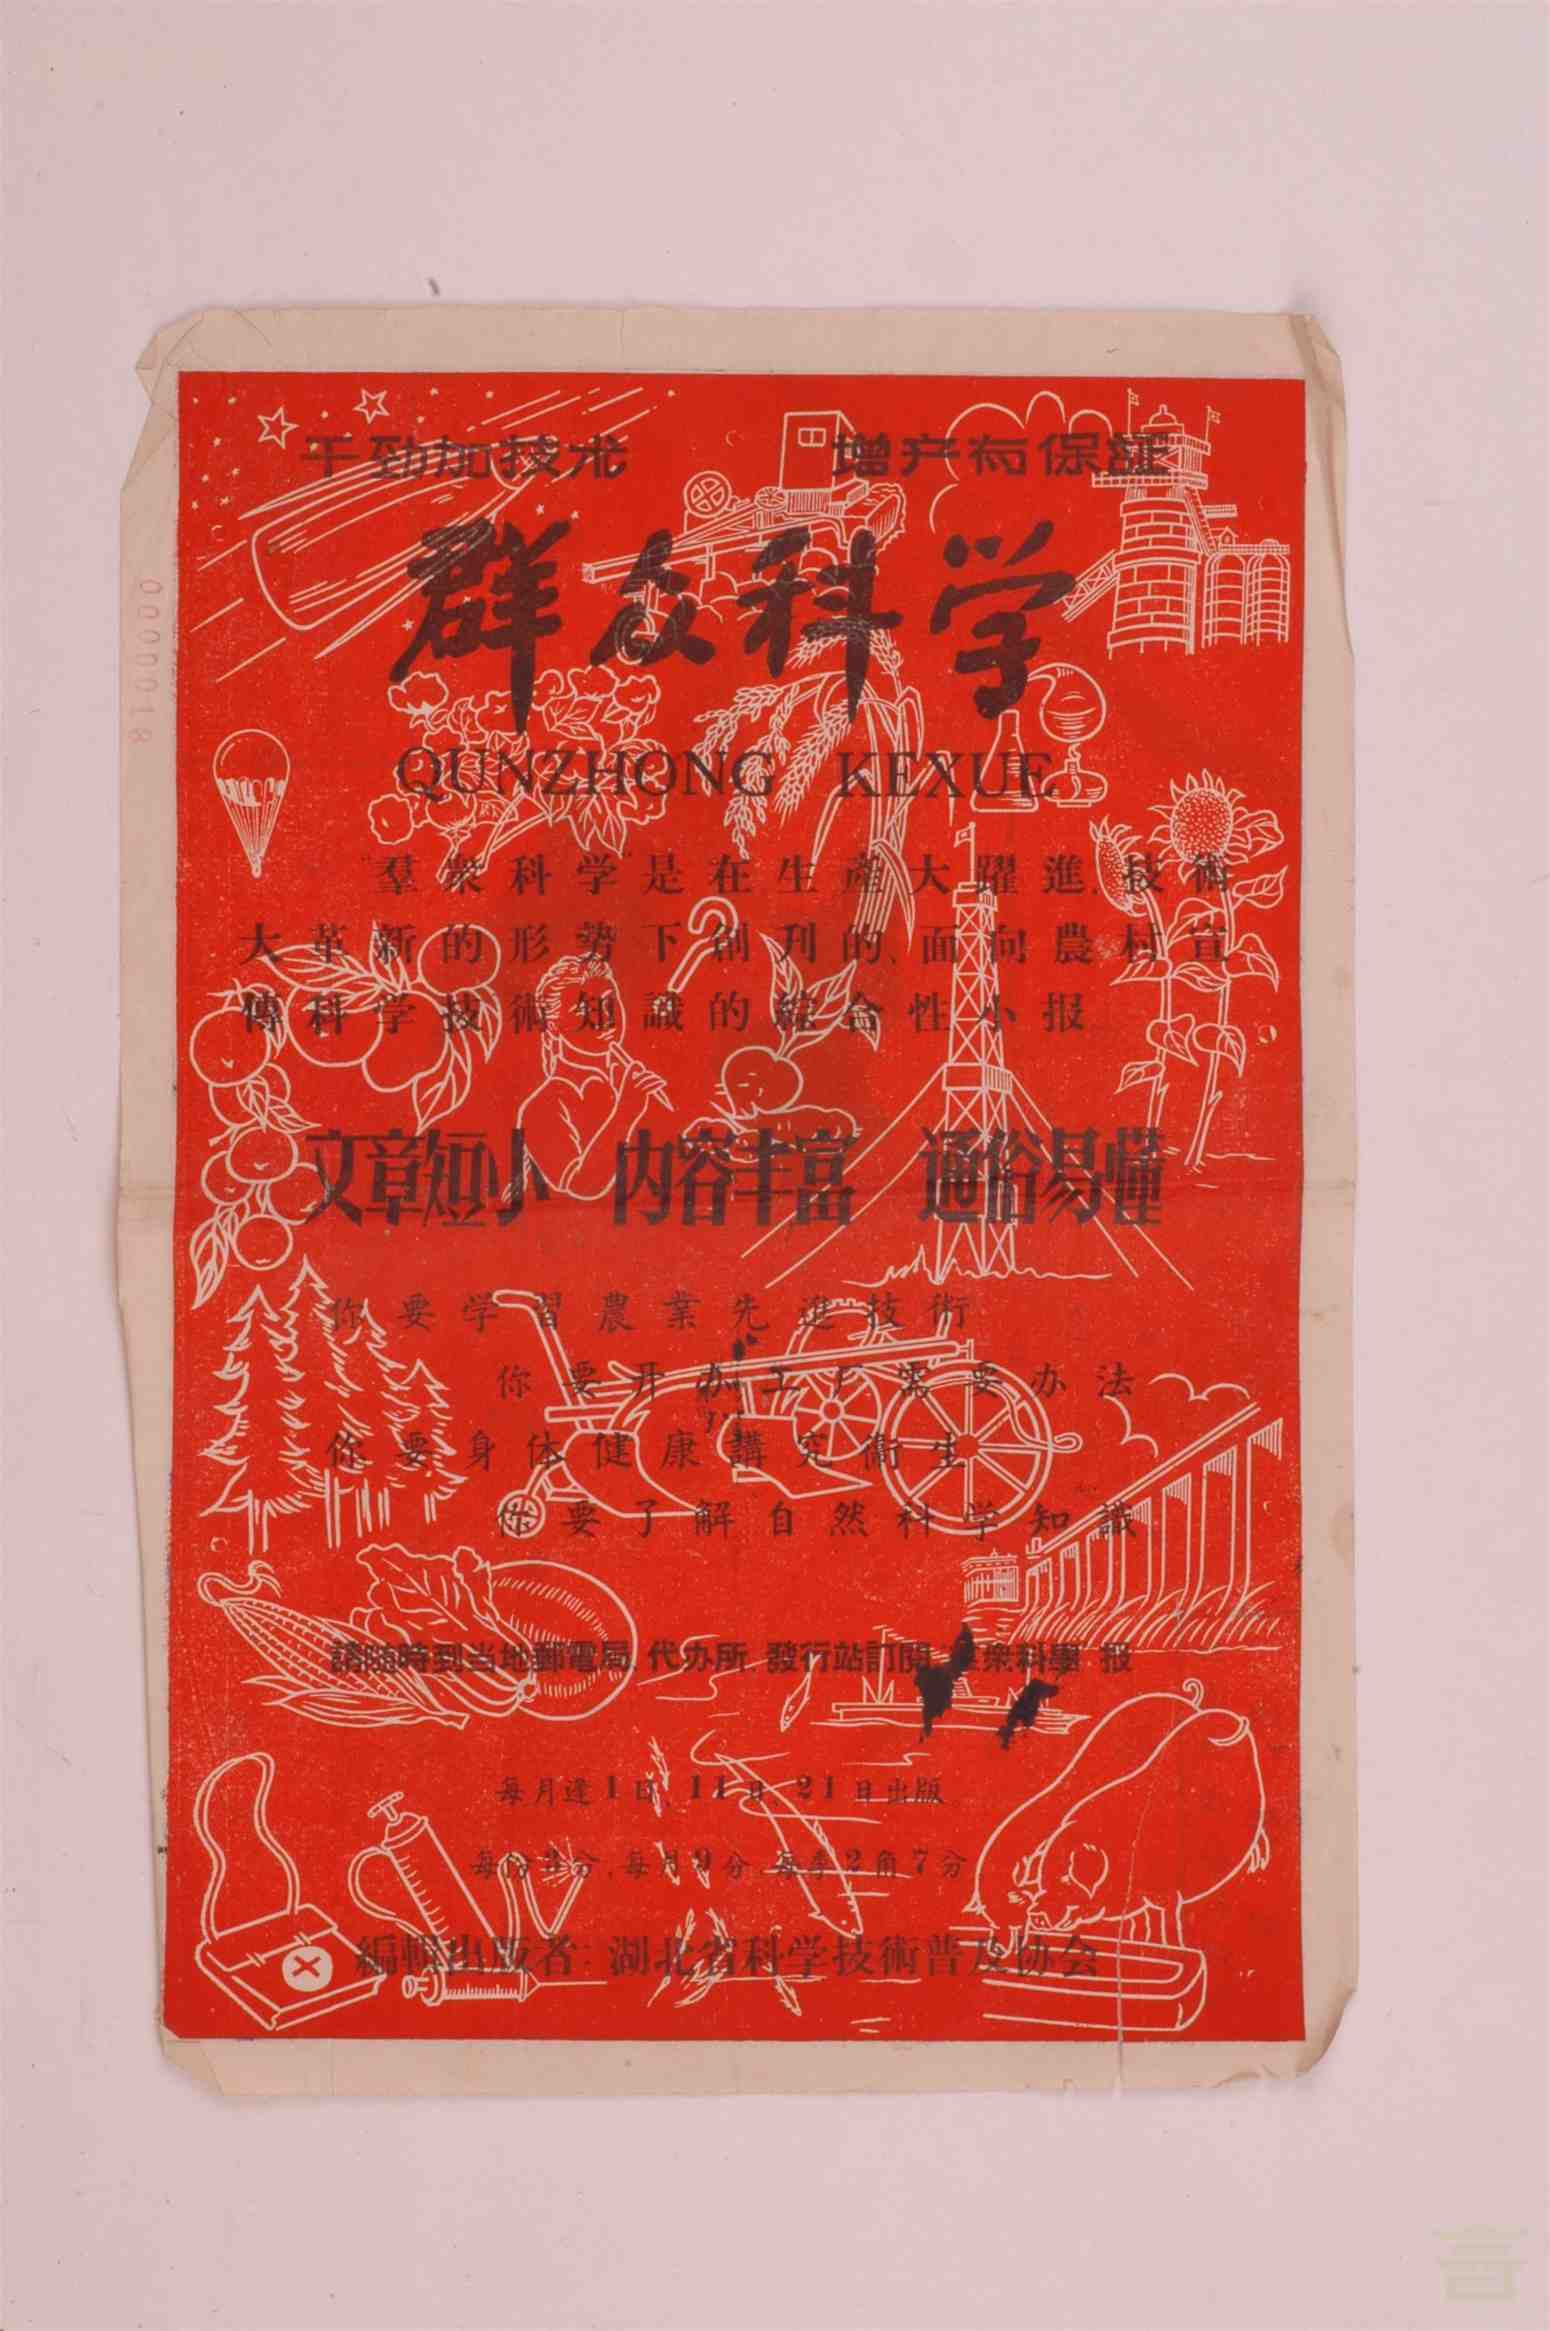 干劲加技术 增产有保証
群众科学
QUNZHONG KEXUE
“羣衆科学”是在生產大躍進、技術
大革新的形势下創刋的、面向農村宣
傳科学技術知識的綜合性小报
文章短小 内容丰富 通俗易懂
你要学習農業先進技術
你要开办工厂需要办法
你要身体健康講究衞生
你要了解自然科学知識
請随時到当地郵電局、代办所、發行站訂閱 衆科學 报
每月逢1日、11日、21日出版
每份3分,每月9分,每季2角7分
編輯出版者：湖北省科学技術普及协会
0000018